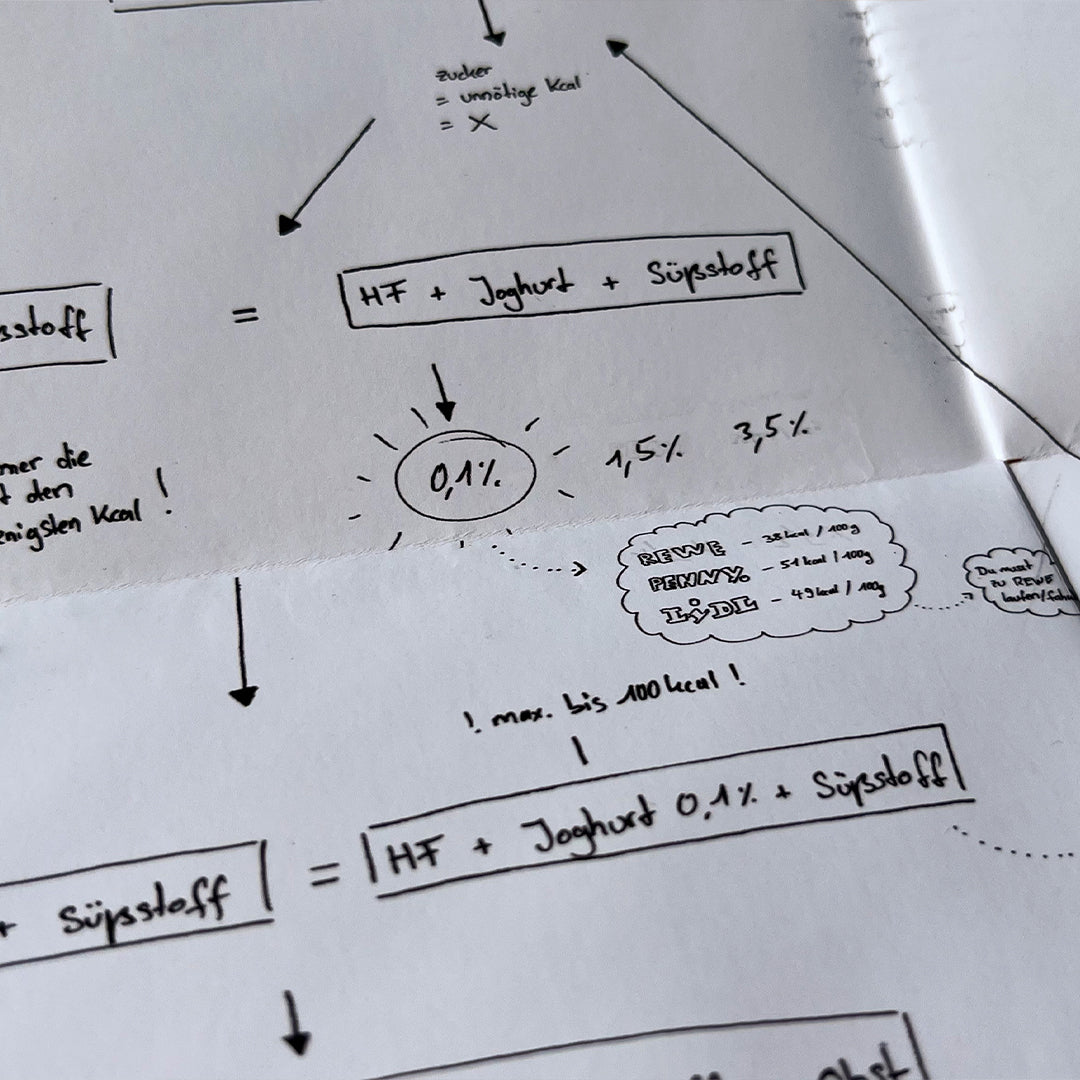 zucker
= unnötige Kcal
= X
sstoff
=
HF + Joghurt + Süßstoff
mer die
t den
enigsten Kcal !
0,1%
1,5%
3,5%
REWE - 38 kcal / 100g
PENNY. - 51 kcal / 100g
LiDL - 49 kcal / 100g
Du musst
zu REWE
laufen/fahr
! max. bis 100 kcal !
+ Süßstoff
=
HF + Joghurt 0,1% + Süßstoff
Obst